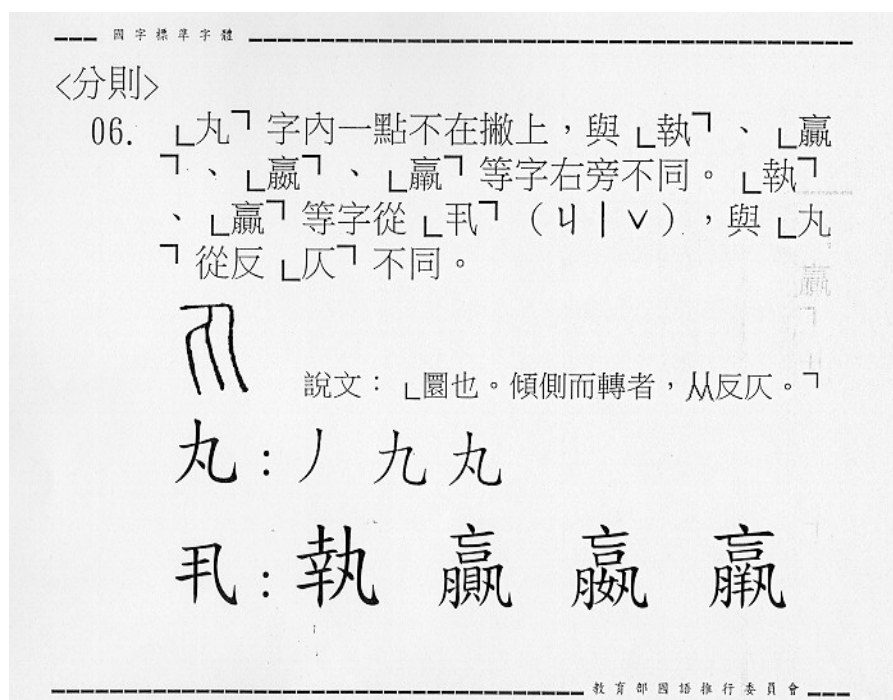 國字標準字體
<分則>
06. 「丸」字內一點不在撇上，與「執」、「贏
」、「嬴」、「羸」等字右旁不同。「執」
、「贏」等字從「丮」（ㄐㄧˇ），與「丸
」從反「仄」不同。
說文：「圜也。傾側而轉者，从反仄。」
丸：丿 九 丸
丮：執 贏 嬴 羸
教育部國語推行委員會